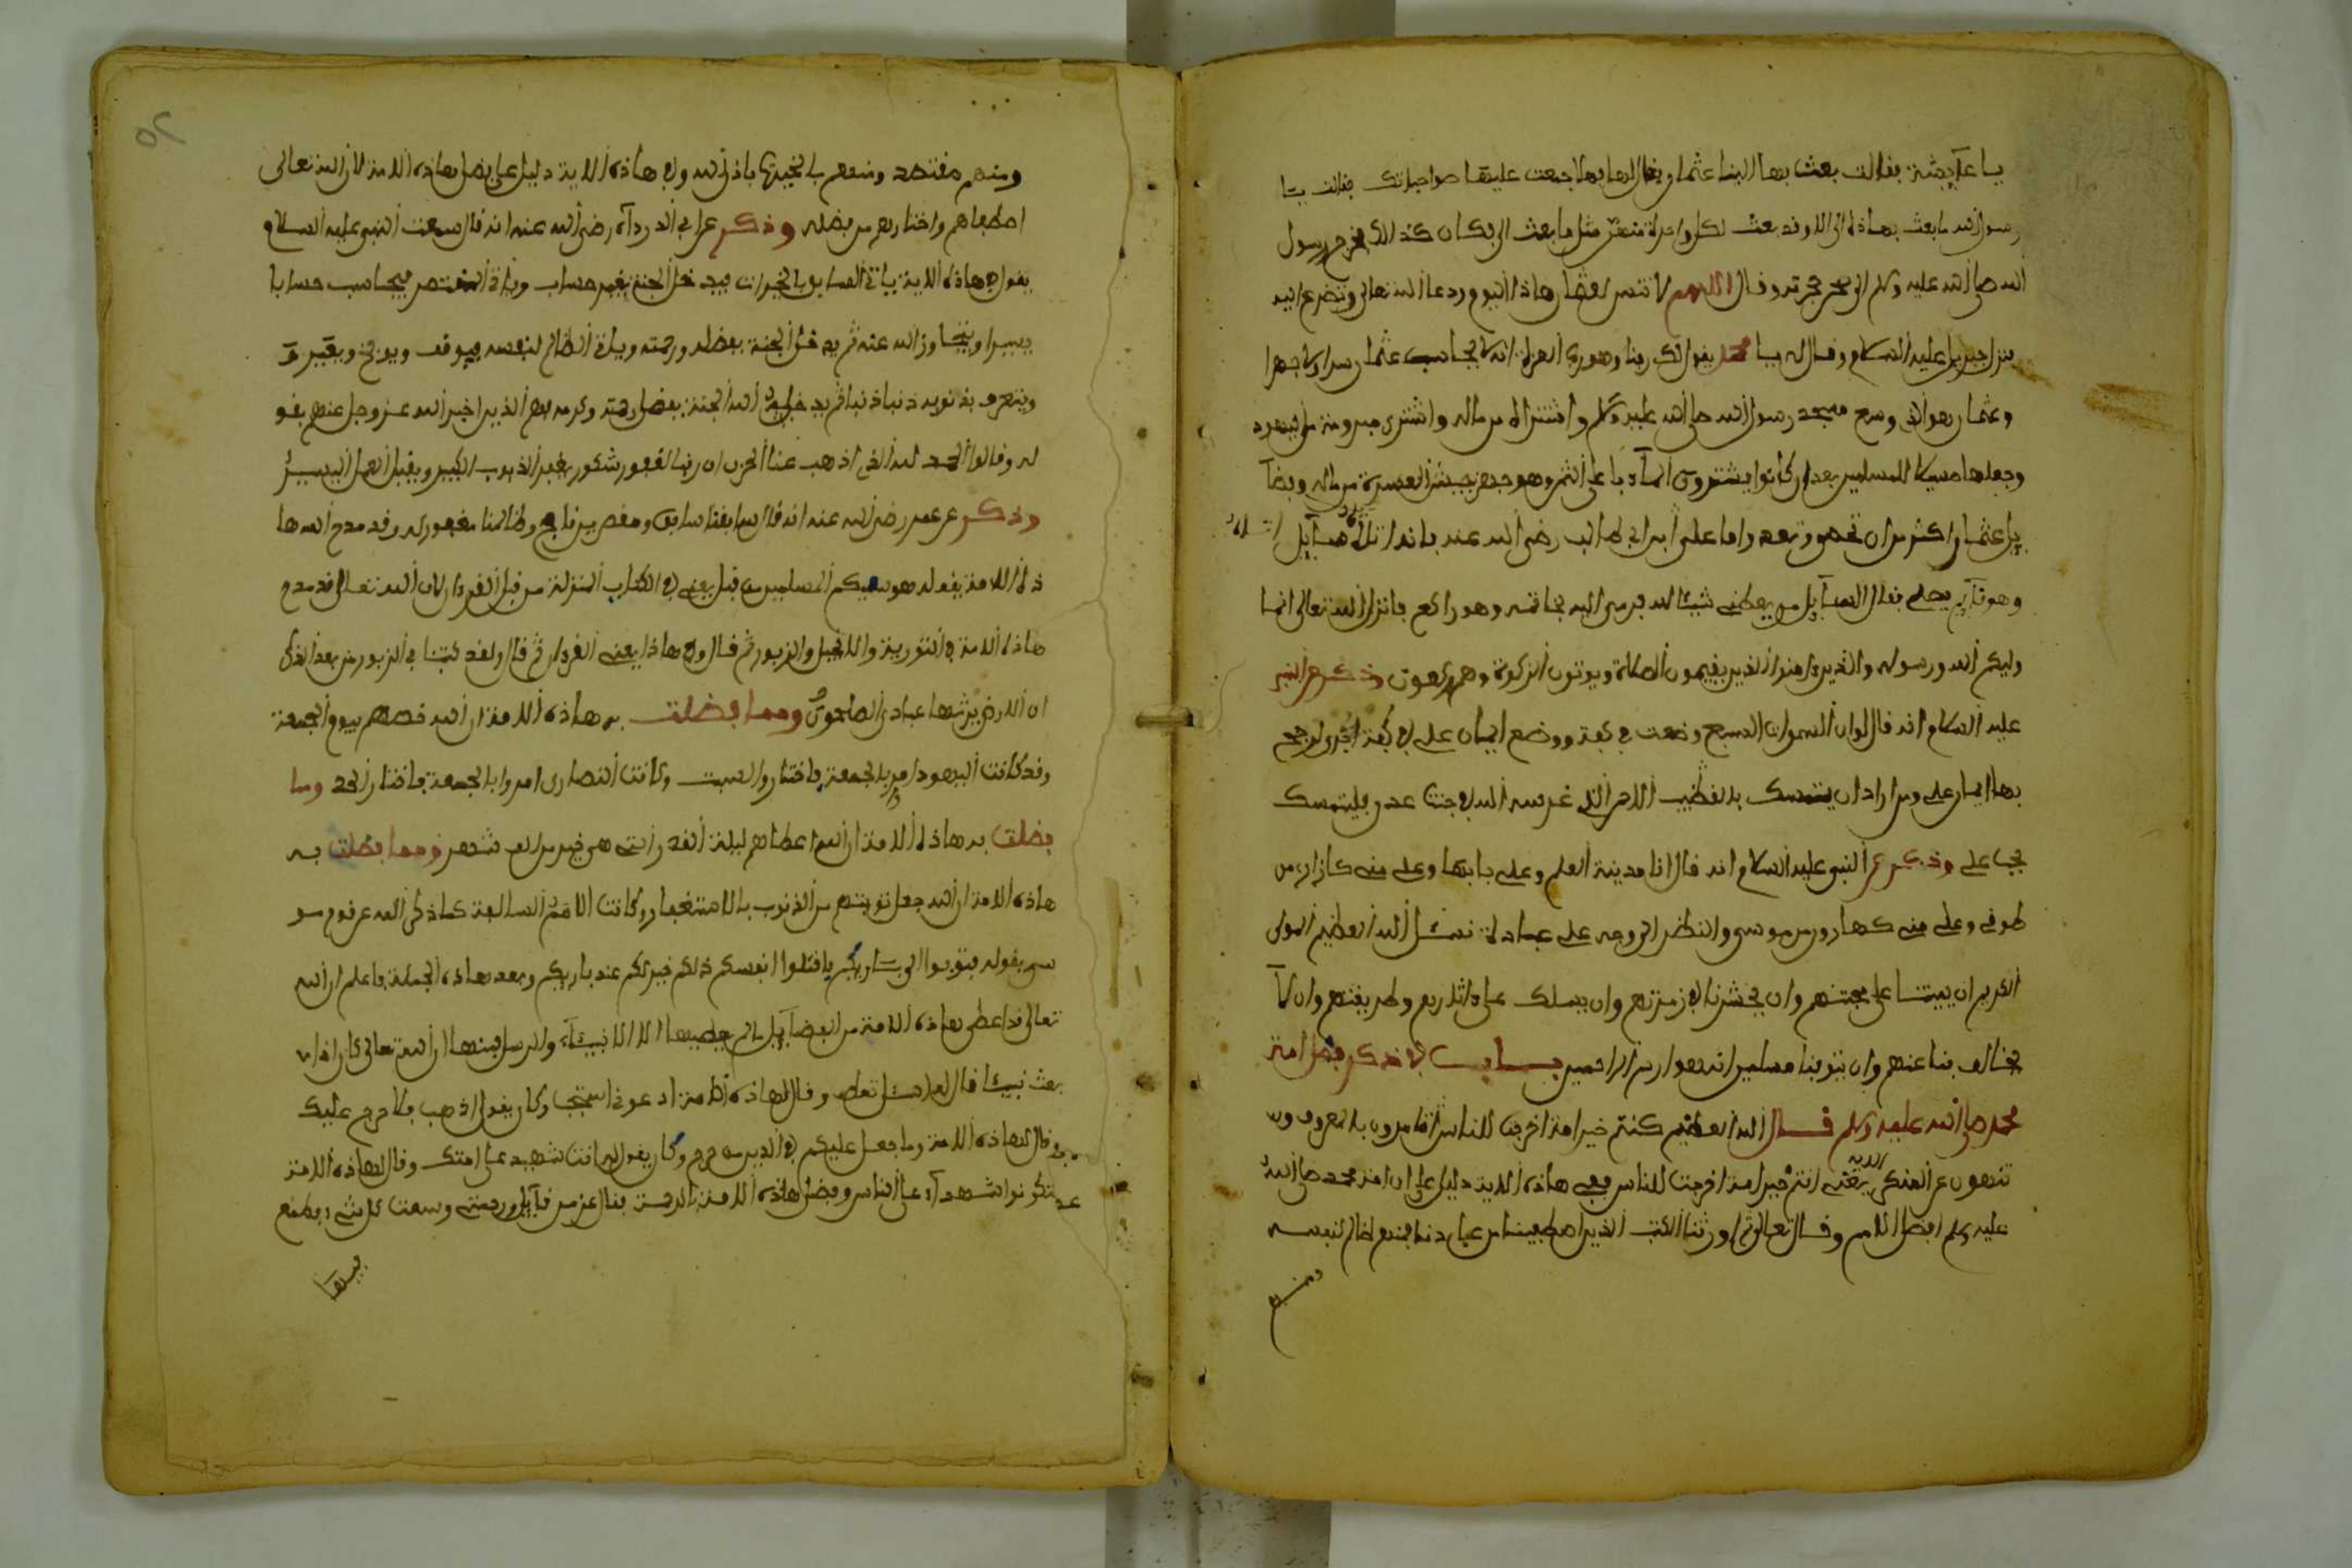 يا عآيشة فقالت بعث بها الينا عثمان فقال لها فهلا جمعت عليها صواحباتك فقالت يا
رسول الله ما بعث بهاذا الي الا وقد بعث لكل واحدة منهن مثل ما بعث الي فكان كذالك فخرج رسول
الله صلى الله عليه وسلم الى صحن حجرته وقال اللهم لا تنس لعثمان هاذا اليوم ودعا الله تعالى وتضرع اليه
فنزل جبريل عليه السلام وقال له يا محمد يقول لك ربنا وهو رب العزة انه لا يحاسب عثمان سرا ولا جهرا
وعثمان هو الذي وسع مسجد رسول الله صلى الله عليه وسلم واشتراه من ماله واشترى بير رومة من يهود
وجعلها سبيلا للمسلمين بعد ان كانوا يشترون المآء باعلى الثمن وهو جهز جيش العسرة من ماله وفضآ
يل عثمان اكثر من ان تحصى وتعد واما علي ابن ابي طالب رضي الله عنه فانه اتاه سآيل
وهو قآيم يصلي فقال السآيل من يعطني شيئا لله فرمى اليه بخاتمه وهو راكع فانزل الله تعالى انما
وليكم الله ورسوله والذين ءامنوا الذين يقيمون الصلاة ويوتون الزكوة وهم ركعون وذكر عن النبي
عليه السلام انه قال لو ان السموات السبع وضعت في كفة ووضع ايمان علي في كفة اخرى لرجح
بها ايمان علي ومن اراد ان يتمسك بالقضيب الاحمر الذي غرسه الله في جنة عدن فليتمسك
بحب علي وذكر عن النبي عليه السلام انه قال انا مدينة العلم وعلي بابها وعلي مني كازاري من
طوفي وعلي مني كهارون من موسى والنظر الى وجه علي عبادة نسئل الله العظيم المولى
الكريم ان يميتنا على محبتهم وان يحشرنا في زمرتهم وان يسلك بنا ءاثارهم وطريقتهم وان لا
يخالف بنا عنهم وان يتوفنا مسلمين انه هو ارحم الراحمين باب في ذكر فضل امة
محمد صلى الله عليه وسلم قال الله العظيم كنتم خير امة اخرجت للناس تامرون بالمعروف و
تنهون عن المنكر الاية يعني انتم خير امة اخرجت للناس ففي هاذه الاية دليل على ان امة محمد صلى الله
عليه وسلم افضل الامم وقال تعالى ثم اورثنا الكتب الذين اصطفينا من عبادنا فمنهم ظالم لنفسه
ومنهم
ومنهم مقتصد ومنهم سابق بالخيرات باذن الله وفي هاذه الاية دليل على فضل هاذه الامة لان الله تعالى
اصطفاهم واختارهم من فضله وذكر عن ابي الدردآء رضي الله عنه انه قال سمعت النبي عليه السلام
يقول في هاذه الاية ياتي السابق بالخيرات فيدخل الجنة بغير حساب وياتي المقتصد فيحاسب حسابا
يسيرا ويتجاوز الله عنه ثم يدخل الجنة بفضله ورحمته وياتي الظالم لنفسه فيوقف ويوبخ ويقرر
ويتعرف بذنوبه ذنبا ذنبا ثم يدخله الله الجنة بفضل رحمته وكرمه فهم الذين اخبر الله عز وجل عنهم بقو
له وقالوا الحمد لله الذي اذهب عنا الحزن ان ربنا لغفور شكور يغفر الذنوب الكبير ويقبل العمل اليسير
وذكر عن عمر رضي الله عنه انه قال سابقنا سابق ومقصرنا ناج وظالمنا مغفور له وقد مدح الله ها
ذه الامة بقوله هو سميكم المسلمين من قبل يعني في الكتاب المنزلة من قبل القرءان لان الله تعالى قد مدح
هاذه الامة في التورية والانجيل والزبور ثم قال وفي هاذا يعني القرءان ثم قال ولقد كتبنا في الزبور من بعد الذكر
ان الارض يرثها عبادي الصالحون ومما فضلت به هاذه الامة ان الله خصهم بيوم الجمعة
وقد كانت اليهود امروا بالجمعة فاختاروا السبت وكانت النصارى امروا بالجمعة فاختاروا الاحد ومما
فضلت به هاذه الامة ان الله اعطاهم ليلة القدر التي هي خير من الف شهر ومما فضلت به
هاذه الامة ان الله جعل توبتهم من الذنوب بالاستغفار وكانت الامم السالفة كما ذكر الله عن قوم مو
سى بقوله فتوبوا الى باريكم فاقتلوا انفسكم ذالكم خير لكم عند باريكم وبعد هاذه الجملة فاعلم ان الله
تعالى قد اعطى هاذه الامة من الفضآيل ما لم يعطيها الا الانبيآء والرسل فمنها ان الله تعالى كان اذا
بعث نبيئا قال له سل تعطه وقال لهاذه الامة ادعوني استجب وكان يقول اذهب فلا حرج عليك
وقال لهاذه الامة وما جعل عليكم في الدين من حرج وكان يقول له انت شهيد على امتك وقال لهاذه الامة
لتكونوا شهدآء على الناس وفضل هاذه الامة بالرحمة فقال عز من قآيل ورحمتي وسعت كل شيء فطمع
فيها